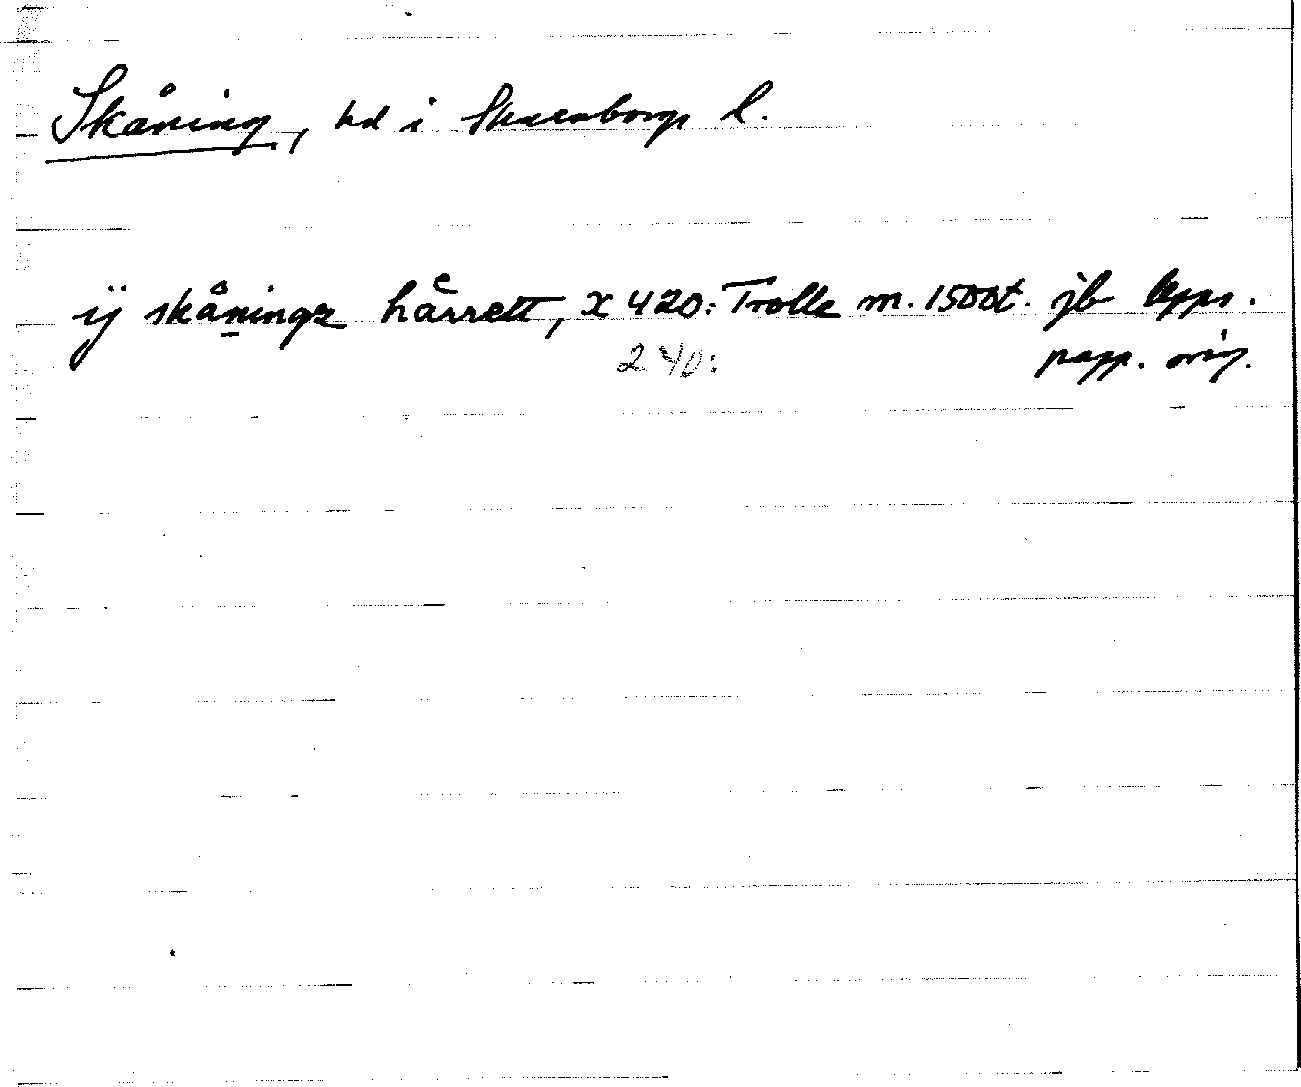 Skåning, hd i Skaraborgs l.
ÿ skåningz hårrett, X 420: Trolle m. 1500t. jb Upps.
240: papp. orig.